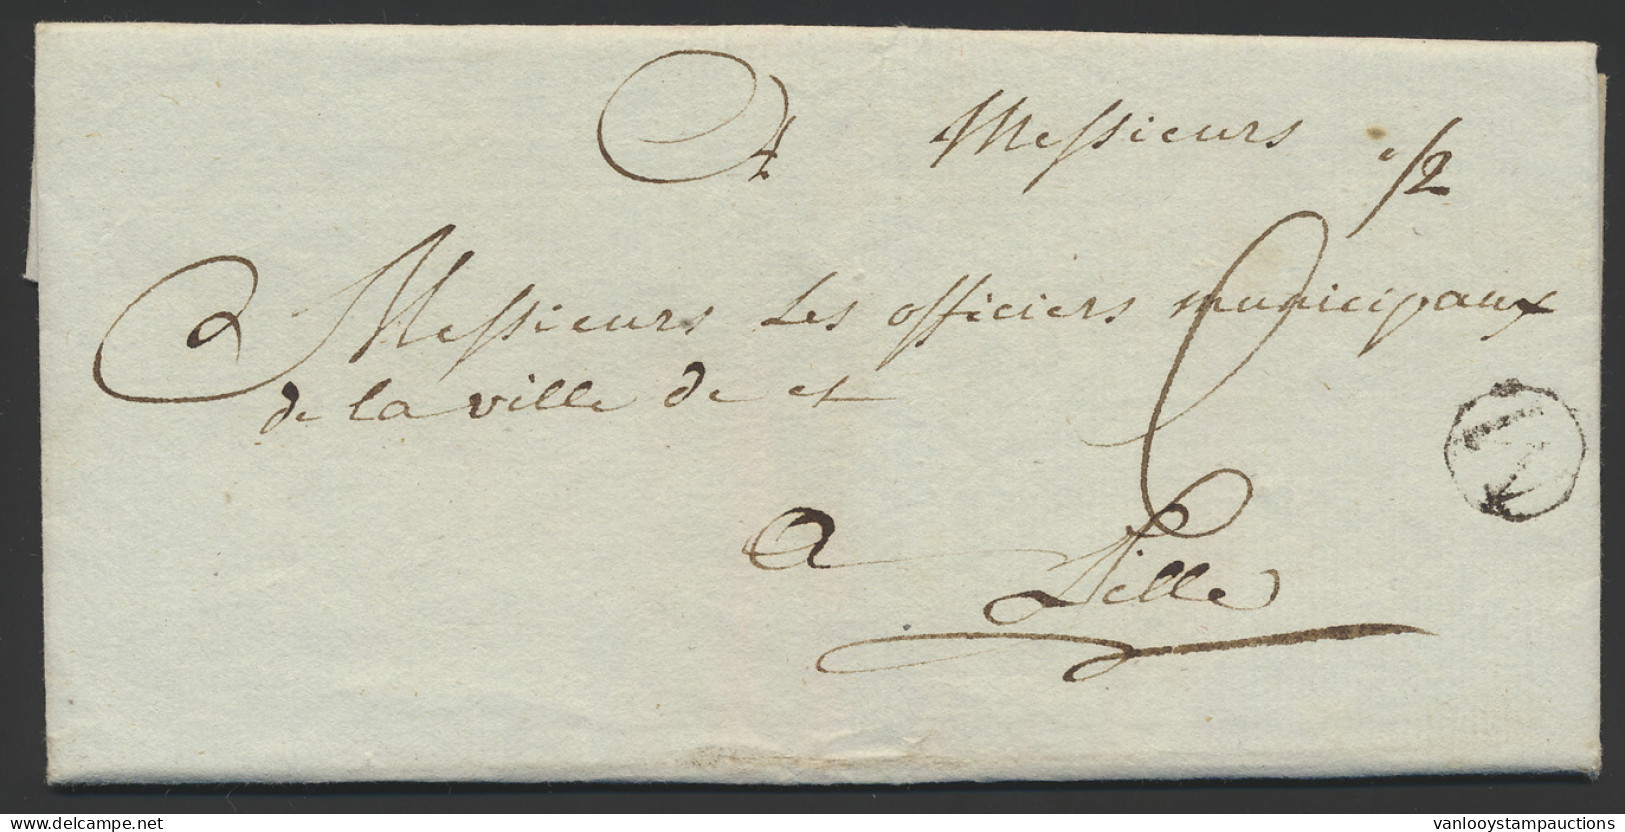 A Messieurs
Messieurs Les officiers municipaux
de la ville de et
a Lille
delcampe.net
vanlooystampauctions